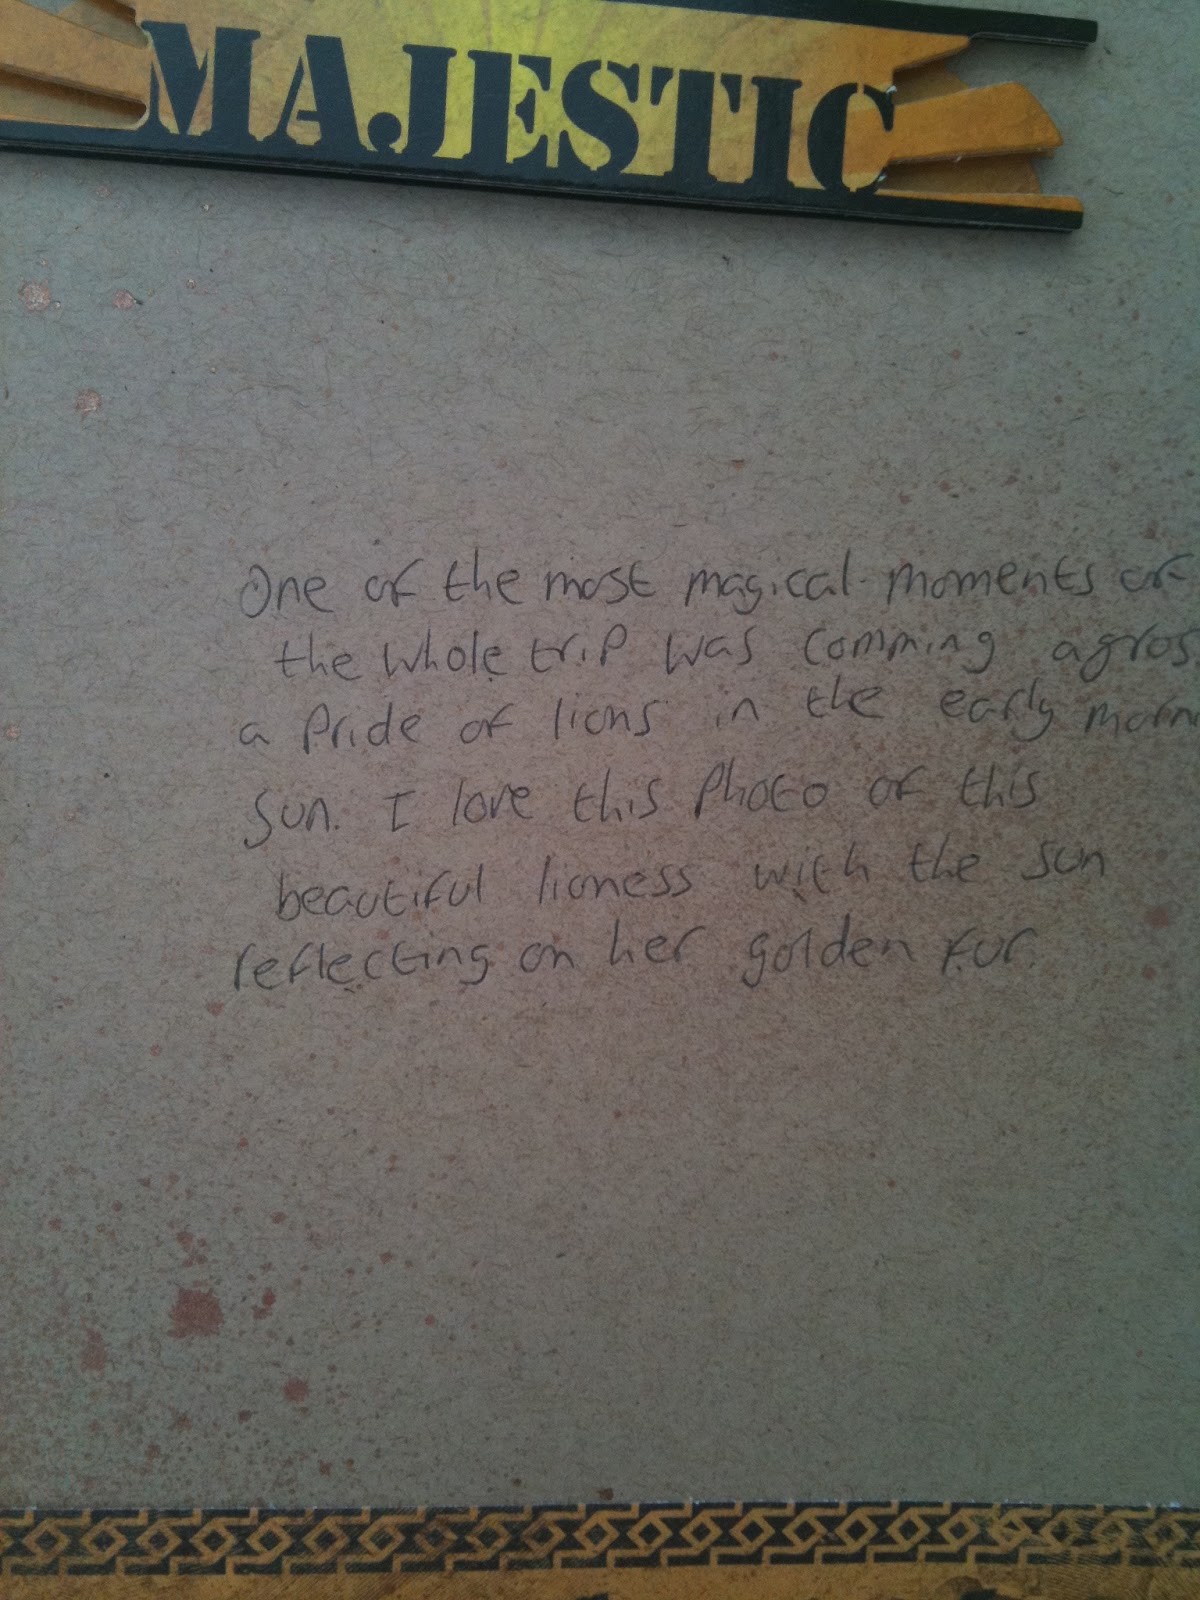 MAJESTIC
One of the most magical moments of
the whole trip was comming agros
a Pride of lions in the early morn
sun. I love this Photo of this
beautiful lioness with the sun
reflecting on her golden fur.